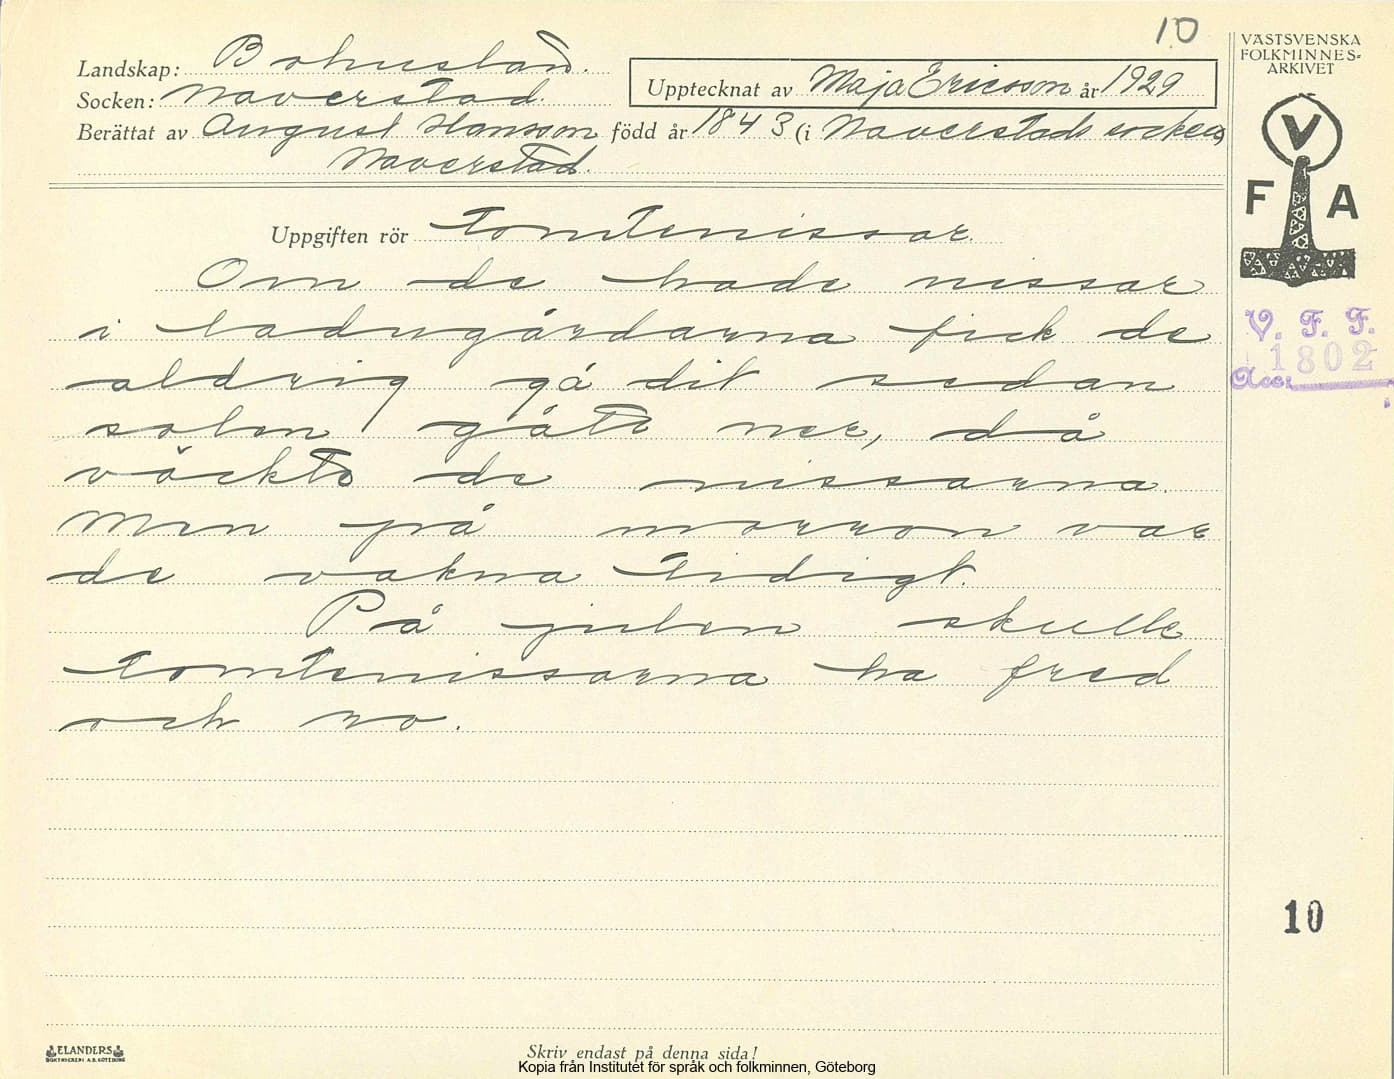 10
VÄSTSVENSKA
FOLKMINNES-
ARKIVET
Landskap: Bohuslän.
Socken: Naverstad.
Upptecknat av Maja Ericsson år 1929
Berättat av August Hansson född år 1843 (i Naverstads socken)
Naverstad.
V
F A
Uppgiften rör Tomtenissar.
Om de hade nissar
i ladugårdarna fick de
aldrig gå dit sedan
solen gått ner, då
väckte de nissarna.
Men på morron var
de vakna tidigt.
På julen skulle
tomtenissarna ha fred
och ro.
V. F. F.
1802
Acc:
10
ELANDERS
BOKTRYCKERI A.B. GÖTEBORG
Skriv endast på denna sida!
Kopia från Institutet för språk och folkminnen, Göteborg